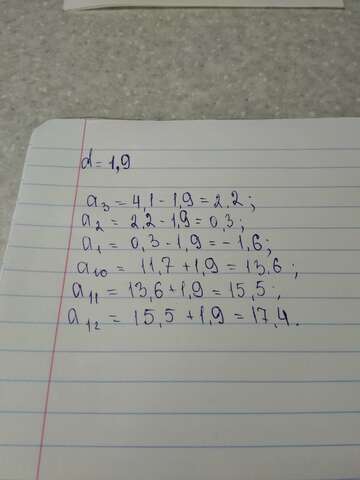 d = 1,9
a₃ = 4,1 - 1,9 = 2,2;
a₂ = 2,2 - 1,9 = 0,3;
a₁ = 0,3 - 1,9 = - 1,6;
a₁₀ = 11,7 + 1,9 = 13,6;
a₁₁ = 13,6 + 1,9 = 15,5;
a₁₂ = 15,5 + 1,9 = 17,4.